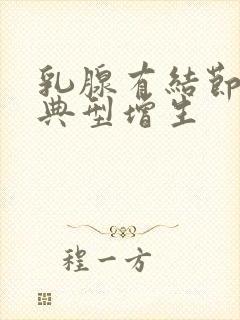 乳腺有結節
典型增生
程一方